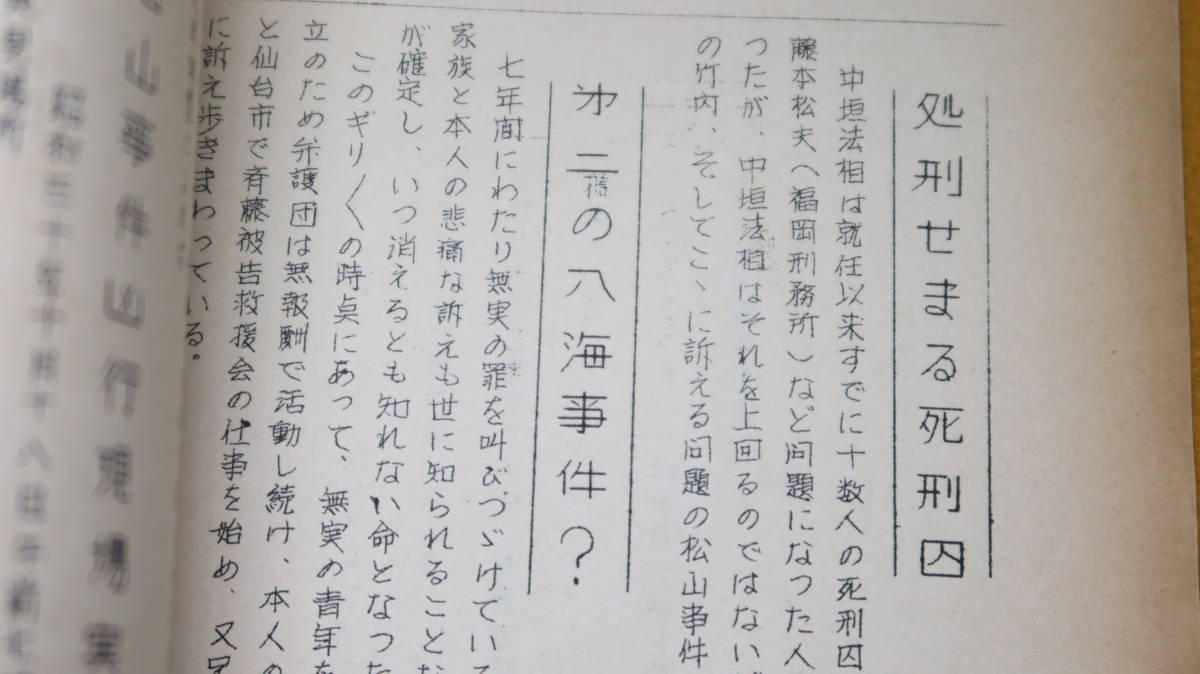 処刑せまる死刑囚
中垣法相は就任以来すでに十数人の死刑囚
藤本松夫(福岡刑務所)など問題になつた人
つたが、中垣法相はそれを上回るのではない
の竹内、そしてこゝに訴える問題の松山事件
㐧二の八海事件?
七年間にわたり無実の罪を叫びつゞけている
家族と本人の悲痛な訴えも世に知られること
が確定し、いつ消えるとも知れない命となった
このギリ〳〵の時点にあって、無実の青年を
立のため弁護団は無報酬で活動し続け、本人の
と仙台市で斉藤被告救援会の仕事を始め、又
に訴え歩きまわっている。
山事件山行現場実